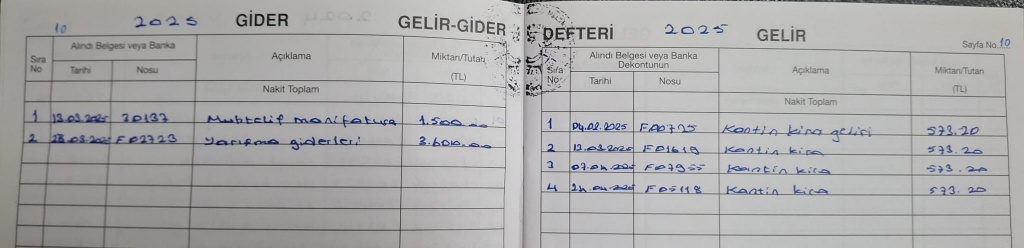 10 2025 GİDER GELİR-GİDER
Sıra No Alındı Belgesi veya Banka Açıklama Miktarı/Tutarı (TL)
Tarihi Nosu
Nakit Toplam
1 13.03.2025 20137 Muhtelif manifatura 1.500.00
2 28.03.2025 F02723 Yarışma giderleri 3.600.00
DEFTERİ 2025 GELİR Sayfa No. 10
Sıra No Alındı Belgesi veya Banka Dekontunun Açıklama Miktarı/Tutarı (TL)
Tarihi Nosu
Nakit Toplam
1 04.02.2025 F00725 Kantin kira geliri 573.20
2 13.03.2025 F01619 Kantin kira 573.20
3 07.04.2025 Kantin kira 573.20
4 24.04.2025 F05118 Kantin kira 573.20